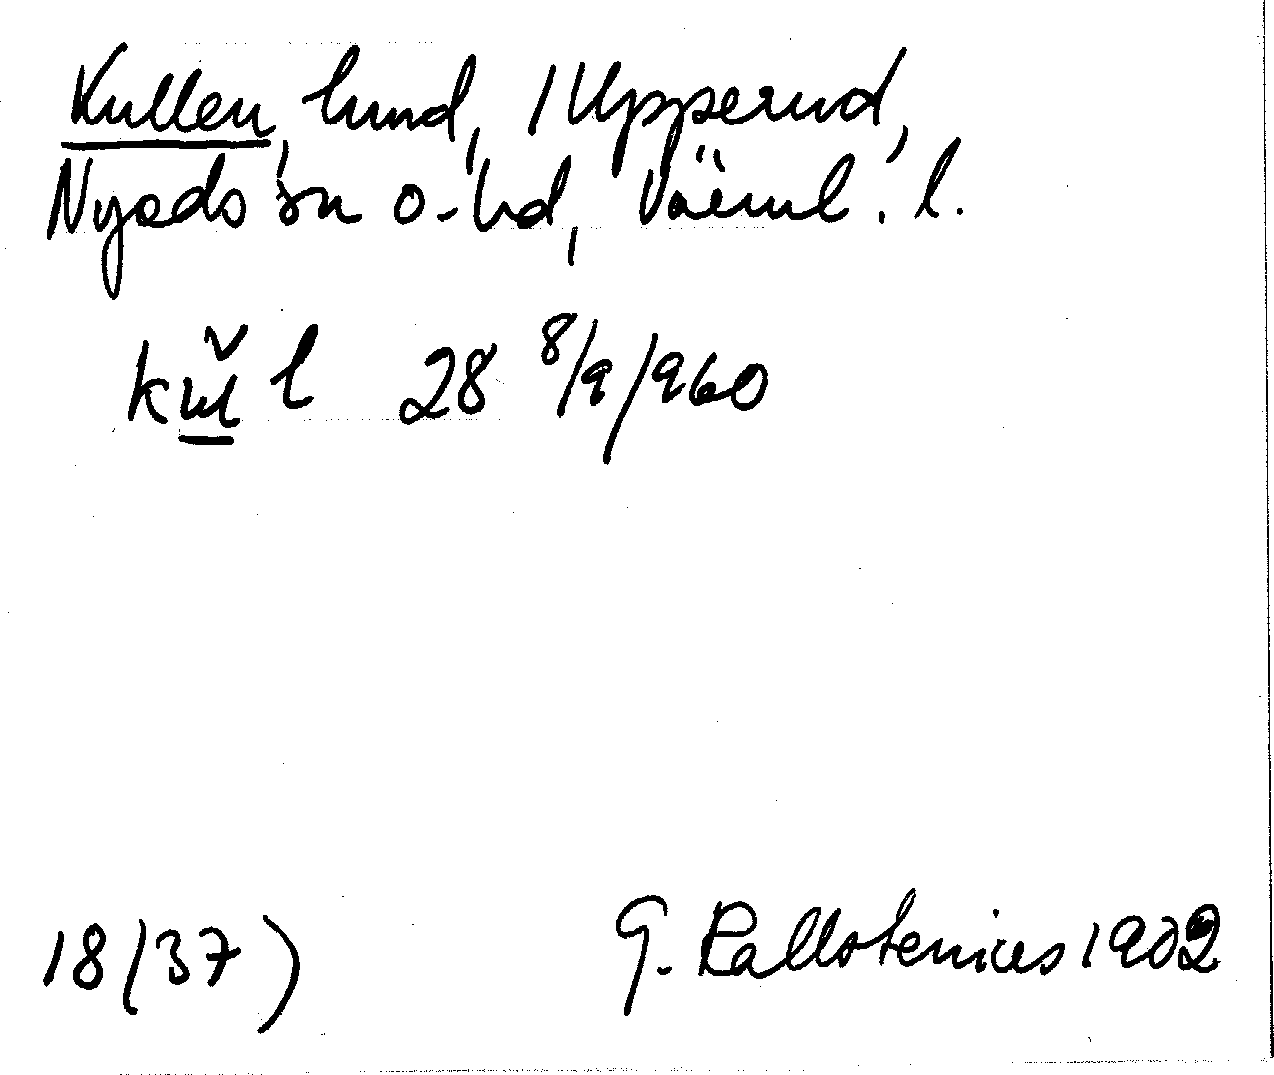 Kullen, lund, 1 Upperud,
Nyeds sn o. hd, Värml. l.
28 8/9 1960
18 (37)
G. Kallstenius 1902